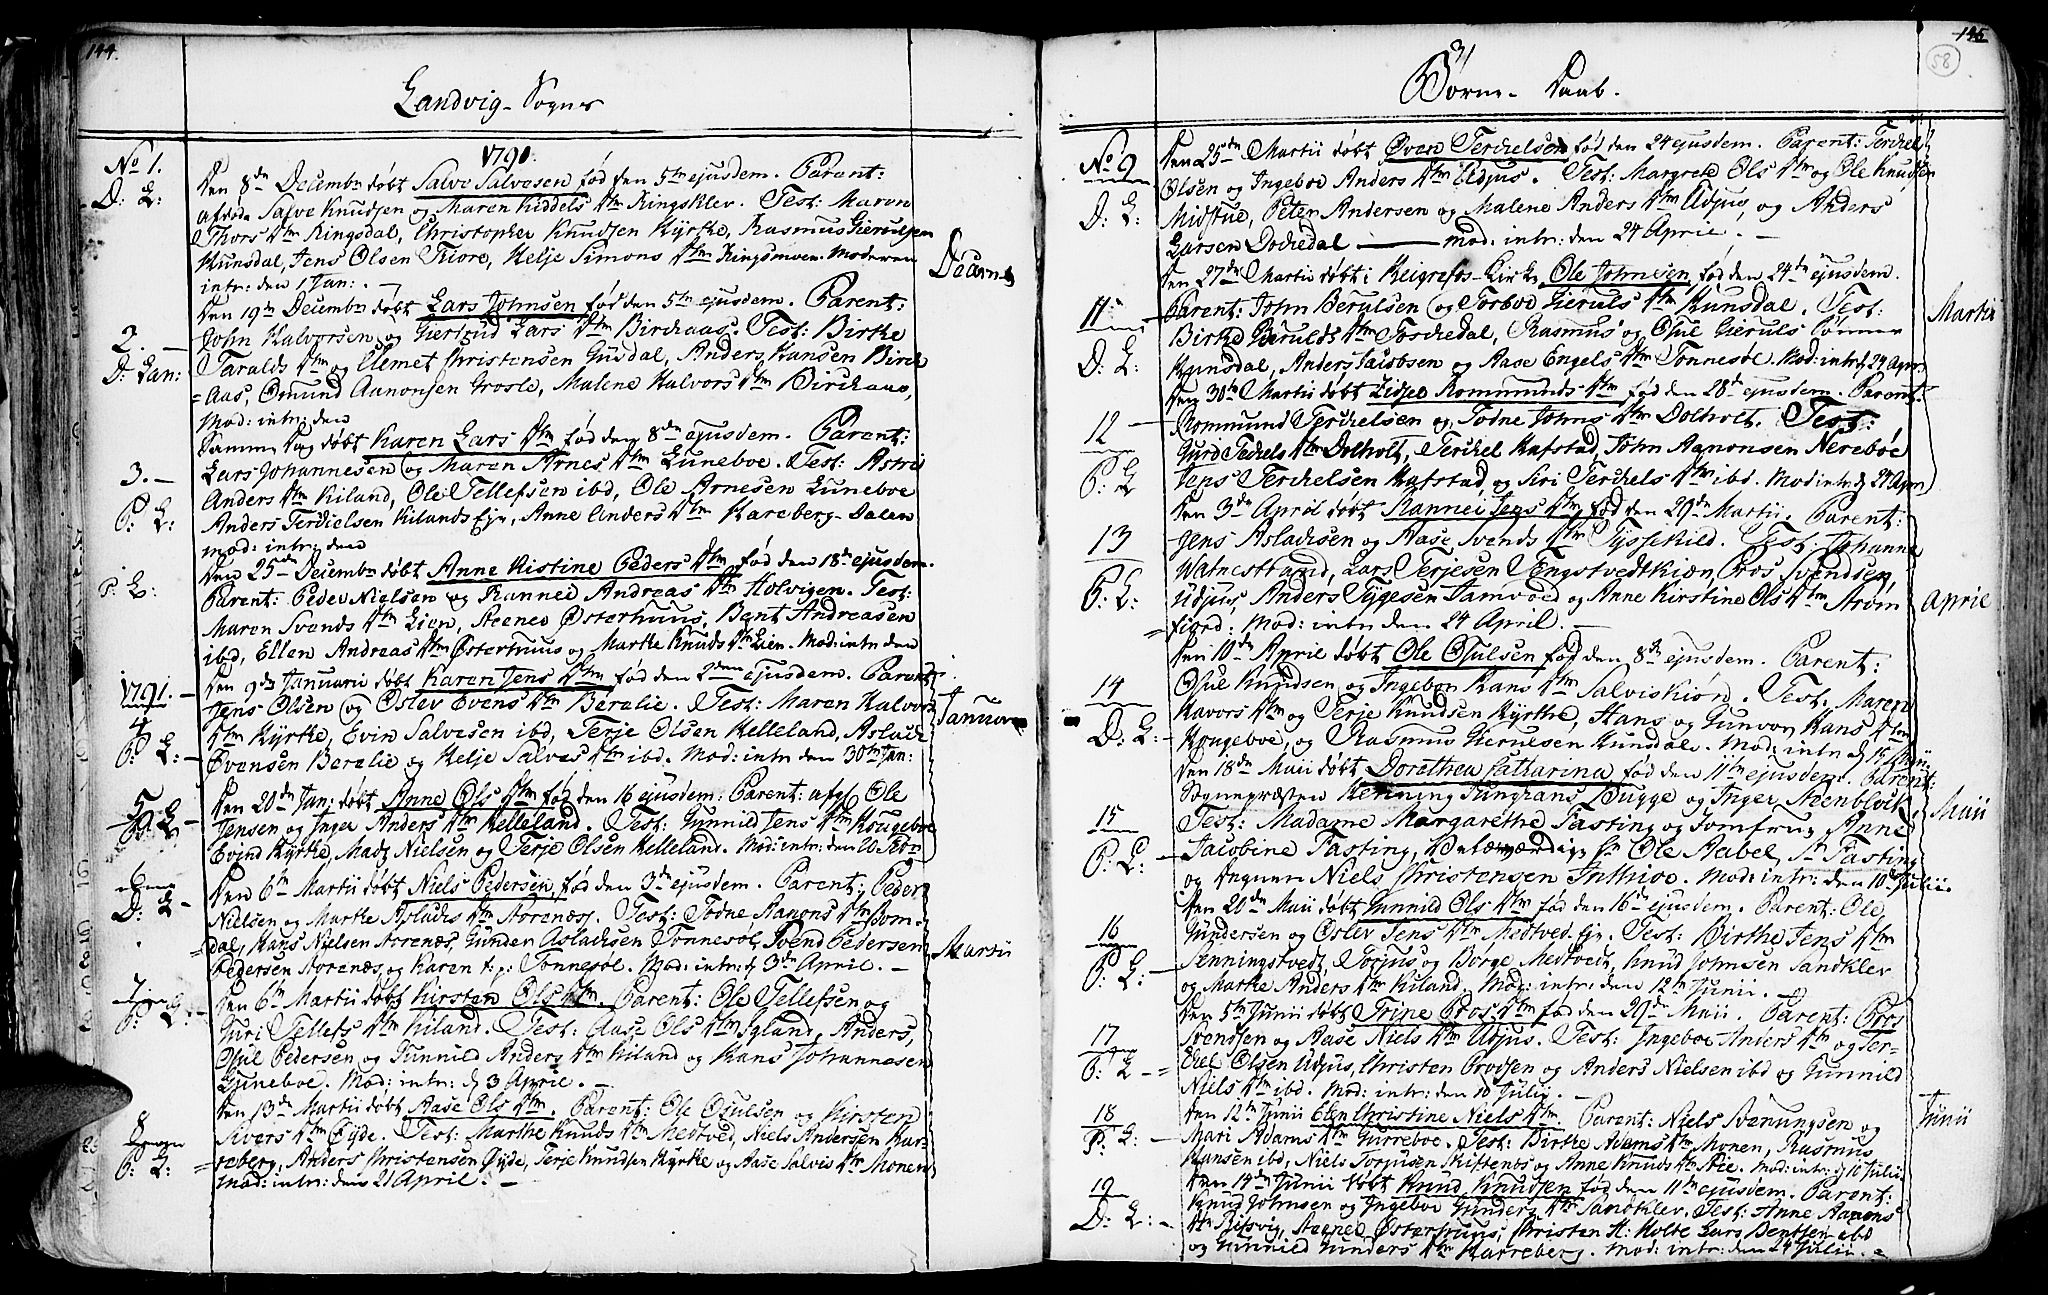 144.
Landvig - Sogns
1790.
No 1.
D: L:
Den 8de Decembr døbt Salve Salvesen fød den 5te ejusdem. Parent:
afdøde Salve Knudsen og Maren Kiddels Dtr Ringsklev. Test: Maren
Thors Dtr Ringsdal, Christopher Knudsen Kyrke, Rasmus Gierulsen
Hunsdal, Jens Olsen Fiore, Helje Simons Dtr Ringsmoen. Moderen
intr: den 1 Jan: . —
Decembr
2. —
D: Lan:
Den 19de Decembr døbt Lars Johnsen fød den 5te ejusdem. Parent:
John Halvorsen og Giertrud Lars Dtr Birchaas. Test: Birthe
Taralds Dtr og Clemet Christensen Gusdal, Anders Hansen Birch
=aas, Omund Aanonsen Grosle, Malene Halvors Dtr Birchaas,
Mod: intr: den
3. —
P: L:
Samme Dag døbt Karen Lars Dtr fød den 8de ejusdem. Parent:
Lars Johannesen og Maren Arnes Dtr Luneboe. Test: Astri
Anders Dtr Kiland, Ole Tellefsen ibd, Ole Arnesen Luneboe
Anders Terchelsen Kilands Eje, Anne Anders Dtr Hareberg-Dalen
mod: intr: den
P: L:
Den 25de Decembr døbt Anne Kistine Peders Dtr fød den 18de ejusdem.
Parent: Peder Nielsen og Rannei Andreas Dtr Holvigen. Test:
Maren Svends Dtr Lien, Aanen Østerhuus, Bent Andreasen
ibd, Ellen Andreas Dtr Østerhuus og Marthe Knuds Dtr Lien. Mod: intr den
1791. —
4
P: L: —
Den 9de Januarii døbt Karen Jens Dtr fød den 2den ejusdem. Parent:
Jens Olsen og Oslev Evens Dtr Beralie. Test: Maren Halvors
Dtr Kyrke, Evin Salvesen ibd, Terje Olsen Kelleland, Aslach
Evensen Beralie og Helje Salves Dtr ibd. Mod: intr den 30te Jan:
Januar
5
P: L:
Den 20de Jan: døbt Anne Ols Dtr fød den 16 ejusdem. Parent: afgl Ole
Jensen og Inger Anders Dtr Kelleland. Test: Gunnild Jens Dtr Kougeboe
Evind Kyrke, Madz Nielsen og Terje Olsen Kelleland. Mod: intr: den 20 Febr
6
D: L —
Den 6te Martii døbt Niels Pedersen, fød den 3de ejusdem. Parent: Peder
Nielsen og Marthe Aslachs Dtr Aorenæs. Test: Todne Hanons Dtr Dom-
dal, Hans Nielsen Aorenæs, Gunder Aslachsen Tonnesøl, Svend Pedersen
Pedersen Aorenæs og Karen t: p: Tonnesøl. Mod: intr: d 3de April. —
Martii
7
P: L: —
Den 6te Martii døbt Kirsten Ols Dtr. Parent: Ole Tellefsen og
Guri Tellefs Dtr Kiland. Test: Aase Ols Dtr Igland, Anders,
Osul Pedersen og Gunnild Anders Dtr Kiland og Hans Johannesen
Luneboe. Mod: intr: d 3 April. —
8
P: L:
Den 13de Martii døbt Aase Ols Dtr. Parent: Ole Osulsen og Kirsten
Sivers Dtr Øyde. Test: Marthe Knuds Dtr Medtved, Niels Andersen Har-
=reberg, Anders Christensen Øyde, Terje Knudsen Kyrke og Aase Salvis Dtr Monen
Mod: intr: den 21 April. —
145
58
31
Børne - Daab.
No 9
D: L:
Den 25de Martii døbt Even Terchelsen fød den 24 ejusdem. Parent: Terchel
Olsen og Ingeboe Anders Dtr Udjus. Test: Margrete Ols Dtr og Ole Knudsen
Midstue, Peter Andersen og Malene Anders Dtr Udjus, og Anders
Larsen Dochedal — mod: intr: den 24 April. —
11
D: L:
Den 27de Martii døbt i Heigrefos-Kirke Ole Johnsen fød den 24de ejusdem.
Parent: John Berulsen og Torboe Gieruls Dtr Hunsdal. Test:
Birthe Gierulds Dtr Dochedal, Rasmus og Osul Gieruls Sønner
Hunsdal, Anders Jacobsen og Aase Engels Dtr Tonnesøl. Mod: intr d 24 Apr
Martii
12 —
P: L
Den 30te Martii døbt Lidjer Rommunds Dtr fød den 28de ejusdem. Parent:
Rommund Terchelsen og Todne Johns Dtr Dolholt. Test:
Gurd Techels Dtr Dolholt, Terchel Hafstad, John Aanonsen Nereboe
Jens Terchelsen Hafstad, og Siri Terchels Dtr ibd. Mod intr d 24 Apr
13
P: L:
Den 3de April døbt Rannei Jens Dtr fød den 29de Martii. Parent:
Jens Aslachsen og Aase Svends Dtr Tyssekild. Test: Johanne
Watnestrand, Lars Terjesen Tengstvedtkiøn, Bros Svendsen,
Udjus, Anders Tygesen Tamvoed og Anne Kirstine Ols Dtr Strøm
=fiord. Mod: intr: den 24 April. —
April
14
D: L: —
Den 10de April døbt Ole Osulsen fød den 8de ejusdem. Parent:
Osul Knudsen og Ingebor Hans Dtr Salviskiøn. Test: Maren
Havors Dtr og Terje Knudsen Kyrke, Hans og Gunvor Hans Dtr
Kougeboe, og Rasmus Gierulsen Hunsdal. Mod: intr d 15 Maii
15
P: L:
Den 18de Maii døbt Dorothea Catharina fød den 11te ejusdem. Parent:
Sognepræsten Henning Junghans Bugge og Inger Steenblock
Test: Madame Margarethe Fasting og Jomfrue Anne
Jacobine Fasting, Velærværdige hr Ole Aabel, Sr Fasting
og Degnen Niels Christensen Inthioe. Mod: intr: den 10de Julii
Maii
16
P: L: —
Den 20de Maii døbt Gunnild Ols Dtr fød den 16de ejusdem. Parent: Ole
Gundersen og Oslev Jens Dtr Medtved Eje. Test: Birthe Jens Dtr
Tenningstvedt, Torjus og Børge Medtvedt, Knud Johnsen Sandklev
og Marthe Anders Dtr Kiland. Mod: intr: den 12te Junii. —
17
P: L —
Den 5te Junii døbt Trine Bros Dtr fød den 29de Maii. Parent: Bros
Svendsen og Aase Niels Dtr Udjus. Test: Ingeboe Anders Dtr og Ter-
=chel Olsen Udjus, Christen Brodsen og Anders Nielsen ibd og Gunnild
Niels Dtr ibd. Mod: intr: den 10 Julii. —
18
P: L: —
Den 12te Junii Elen Christine Niels Dtr. Parent: Niels Svenungsen og
Mari Adams Dtr Gurreboe. Test: Birthe Adams Dtr Monen, Rasmus
Hansen ibd, Niels Torjusen Skiftenes og Anne Knuds Dtr Stie. Mod: intr: d 10 Julii
Junii
19
D: L: —
Den 19de Junii døbt Knud Knudsen fød den 11te ejusdem. Parent:
Knud Johnsen og Ingeboe Gunders Dtr Sandklev. Test: Anne Aanons
Dtr Risvig, Aanen Østerhuus, Christen H: Holte Lars Bentsen ibd
og Gunnild Gunders Dtr Harreberg. Mod: intr: den 24 Julii. —